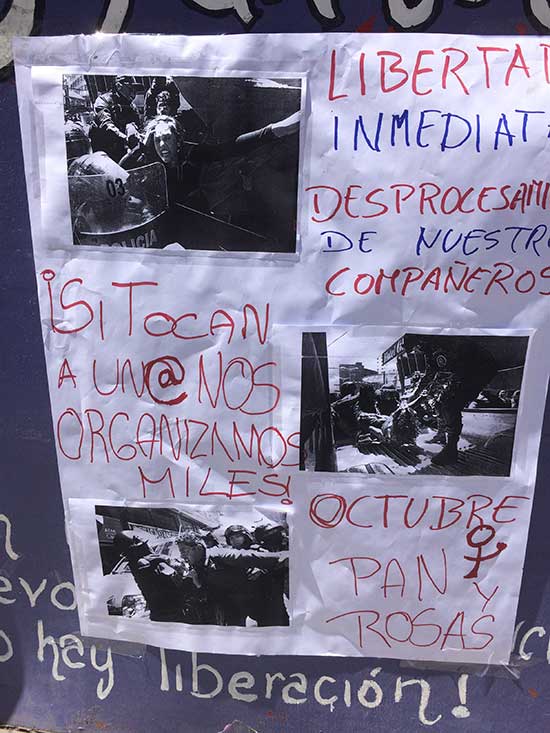 LIBERTA
INMEDIATA
DESPROCESAMI
DE NUESTRO
COMPAÑEROS
03
POLICIA
¡SI TOCAN
A UN@ NOS
ORGANIZAMOS
MILES!
OCTUBRE
PAN Y
ROSAS
evo
o hay liberación!